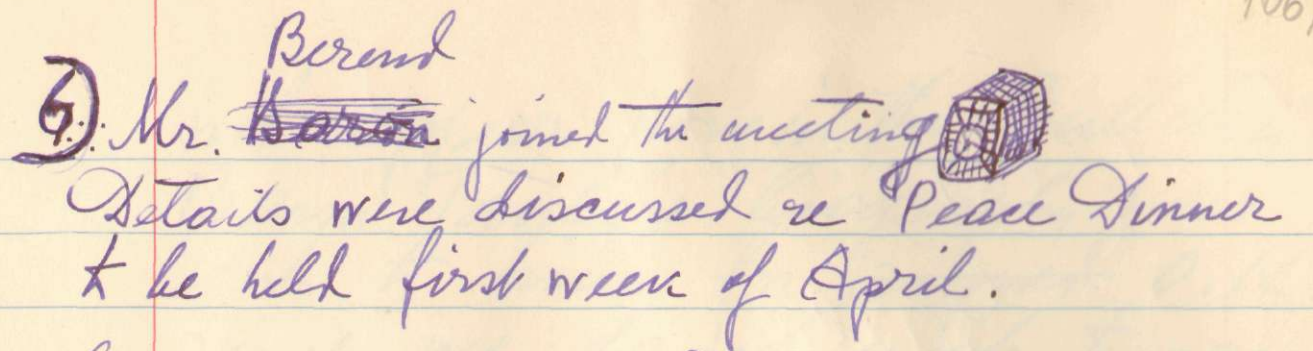 Berend
6). Mr. joined the meeting
Details were discussed re Peace Dinner
to be held first week of April.